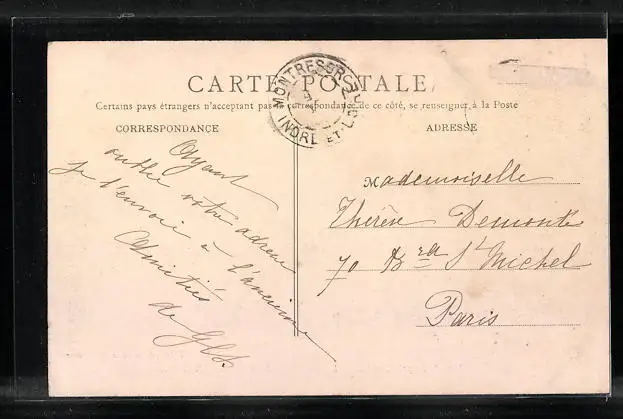 CARTE POSTALE
Certains pays étrangers n'acceptant pas la correspondance de ce côté, se renseigner à la Poste
MONTRESOR
INDRE ET L
CORRESPONDANCE
ADRESSE
Ayant
oublié votre adresse
je l'envoie à l'ancienne
Amitiés
de
Mademoiselle
Thérèse Demonté
70 B St Michel
Paris